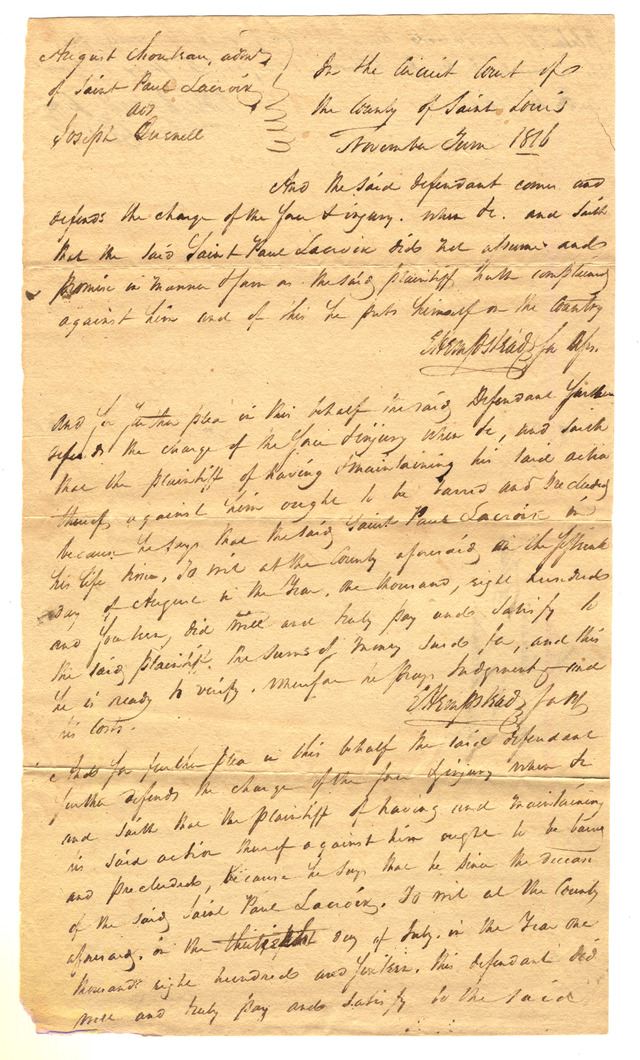 August Chouteau, admr
of Saint Paul Lacroix
ads
Joseph Quenell
In the Circuit Court of
the County of Saint Louis
November Term 1816
And the said defendant comes and
defends the charge of the force & injury. When &c. and saith
that the said Saint Paul Lacroix did not assume and
promise in manner & form as the said plaintiff hath complained
against him and of this he puts himself on the Country
E Hempstead for Dft.
And for further plea in this behalf the said Defendant further
defends the charge of the force & injury when &c, and saith
that the plaintiff of having & maintaining his said action
thereof against him ought to be barred and precluded
because he says that the said Saint Paul Lacroix in
his life time, To wit at the County aforesaid, on the fifteenth
day of August in the Year one thousand, eight hundred
and fourteen, did well and truly pay and satisfy to
the said plaintiff. the sums of money sued for, and this
he is ready to verify. Wherefore he prays Judgment and
his costs.
E Hempstead for Dft
And for further plea in this behalf the said defendant
further defends the charge of the force & injury when &c
and saith that the plaintiff of having and maintaining
his said action thereof against him ought to be barred
and precluded, because he says that he since the decease
of the said Saint Paul Lacroix. To wit at the County
aforesaid, on the day of July. in the Year one
thousand eight hundred and fifteen. this defendant did
well and truly pay and satisfy to the said